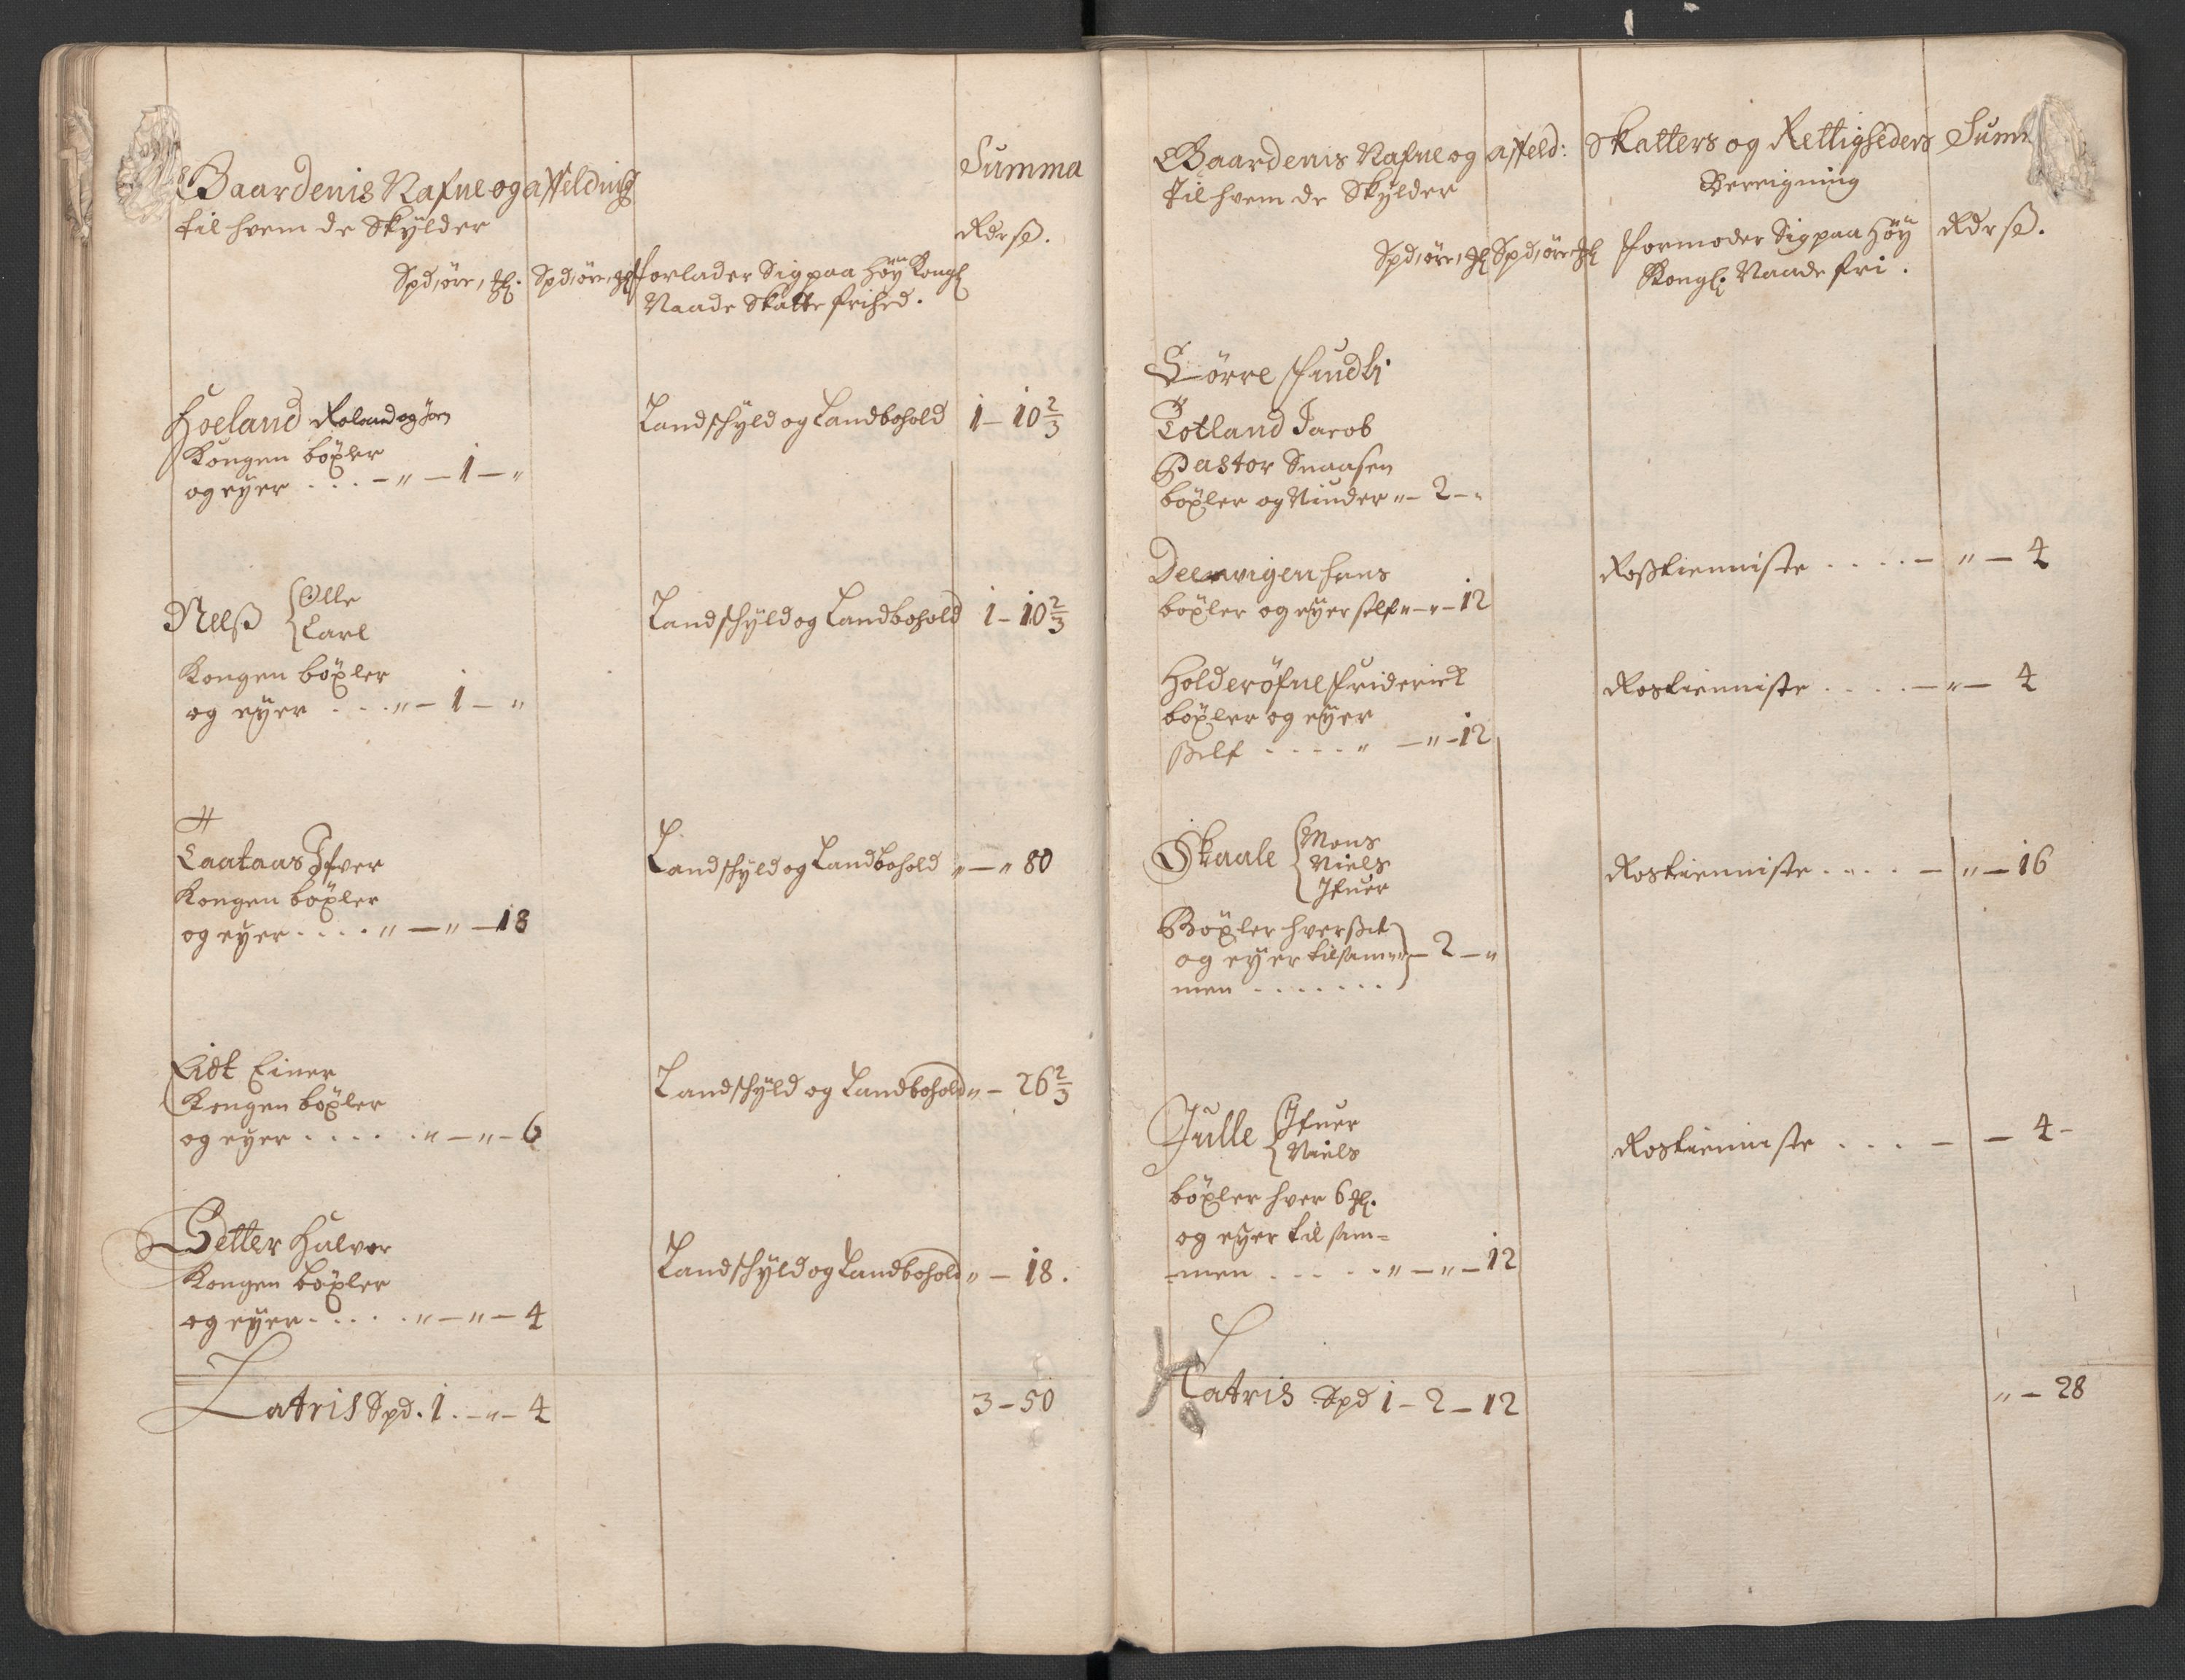 Gaardenis Nafne og affelding
til hvem de Skylder
Summa
Rdr ß.
Spd, öre, Spd, öre, forlader Sig paa Höy Kongl
Naade Skatte frihed.
Hoeland Roland og Jon
Kongen böxler
og eyer . . . - " - 1 - "
Landschyld og Landbohold 1 - 10 2/3
Nelß { Olle
Carl
Kongen böxler
og eyer . . . " - 1 - "
Landschyld og Landbohold 1 - 10 2/3
Laataas Ifver
Kongen böxler
og eyer . . . . " - " - 18
Landschyld og Landbohold " - " 80
Eidt Einer
Kongen böxler
og eyer . . . . . " - " - 6
Landschyld og Landbohold " - 26 2/3
Setter Halvor
Kongen böxler
og eyer . . . . . " - " - 4
Landschyld og Landbohold " - 18.
Latris Spd. 1. - " - 4
3 - 50
Gaardenis Nafne og affeld:
til hvem de Skylder
Skatters og Rettigheders
Bereigning
Summ
Spd, öre, Spd, öre formoder Sig paa Höy
Kongl. Naade fri.
Rdr ß.
Större
Totland Jacob
Pastor Snaasen
böxler og Niuder " - 2 - "
hans
böxler og eyer self " - " - 12
Roßtienniste . . . . - " - 4
Holderöfne Friderick
böxler og eyer
self . . . . . " - " - 12
Rostienniste . . . . - " - 4
Skaale { Mons
Niels
Ifuer
Böxler hver sit
og eyer tilsam " - 2 - "
men . . . . . . .
Rostienniste . . . . - " - 16
Julle { Ifuer
Niels
böxler hver 6
og eyer tilsam=
=men . . . . . " - " - 12
Rostienniste . . . - - 4 -
Latris Spd 1 - 2 - 12
" - 28